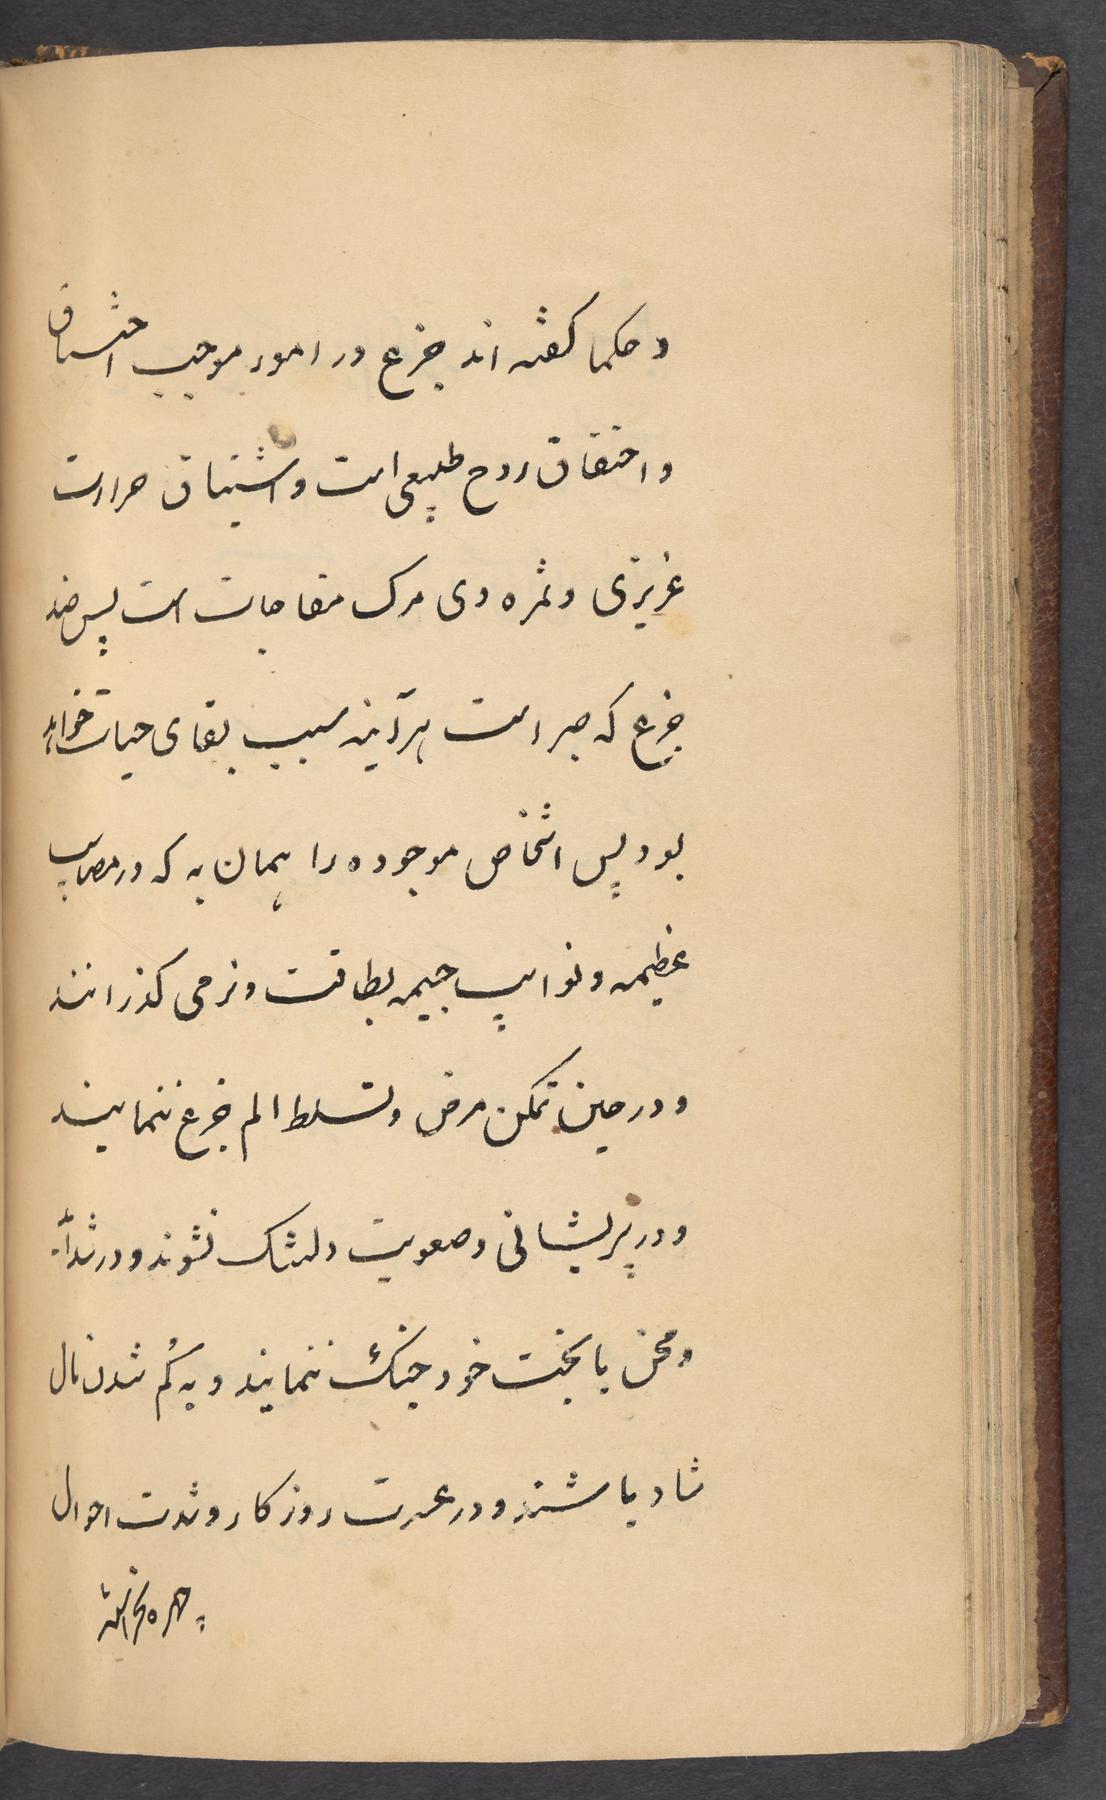 و حکما کفته اند جزع در امور موجب احتساق
و اختقاق روح طبیعی است و اشتیاق حرارت
غریزی و ثمره وی مرک مفاجات است پس ضد
جزع که صبر است هرآینه سبب بقای حیات خواهد
بود پس اشخاص موجوده را همان به که در مصایب
عظیمه و نوایب جیمه بطاقت و نرمی کذرانند
و در حین تمکن مرض و تسلط الم جزع ننمایند
و در پریشانی و صعوبت دلتنک نشوند و در شدآید
و محن با بخت خود جنک ننمایند و به کم شدن مال
شاد باشند و در عسرت روزکار و شدت احوال
چهره